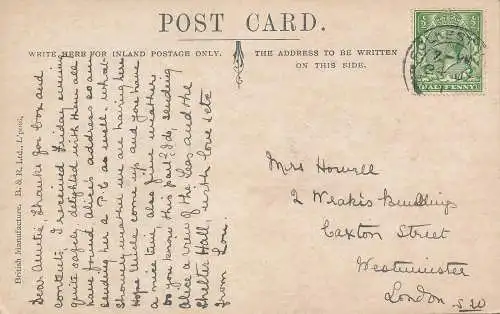 POST CARD.
WRITE HERE FOR INLAND POSTAGE ONLY.
THE ADDRESS TO BE WRITTEN
ON THIS SIDE.
British Manufacture, B. & R. Ltd., L'pool.
Dear Auntie, Thanks for box and
contents, I received Friday evening
quite safely, delighted with them all
have found Alice's address so am
sending her a P.C. as well. What
Showery weather we are having here
Hope Uncle came up and you have
a nice time, also fine weather.
Do you know this part? I do, sending
Alice a view of the Leas and the
Shelter Hall, with love etc
from Lou.
Mrs Howell
2 Buildings
Caxton Street
Westminster
London S.W
HALFPENNY